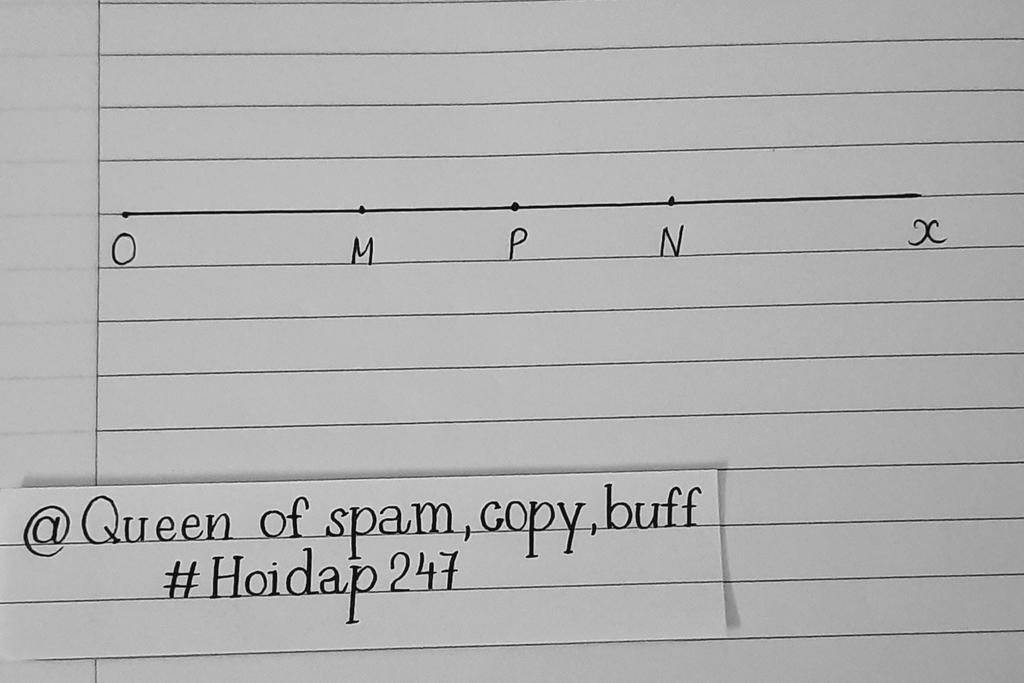 O M P N x
@Queen of spam,copy,buff
#Hoidap247